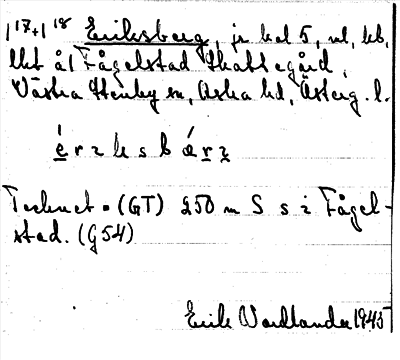 1¹⁷+1¹⁸ Eriksberg, jr kal 5, ut, beb,
Utet å1 Fågelstad Skattegård,
Västra Stenby sn, Aska hd, Österg. l.
é r ɿ k s b æ r ɿ
Tecknet ▪ (GT) 250 m S s i Fågel-
stad. (G54)
Erik Nordlander 1945